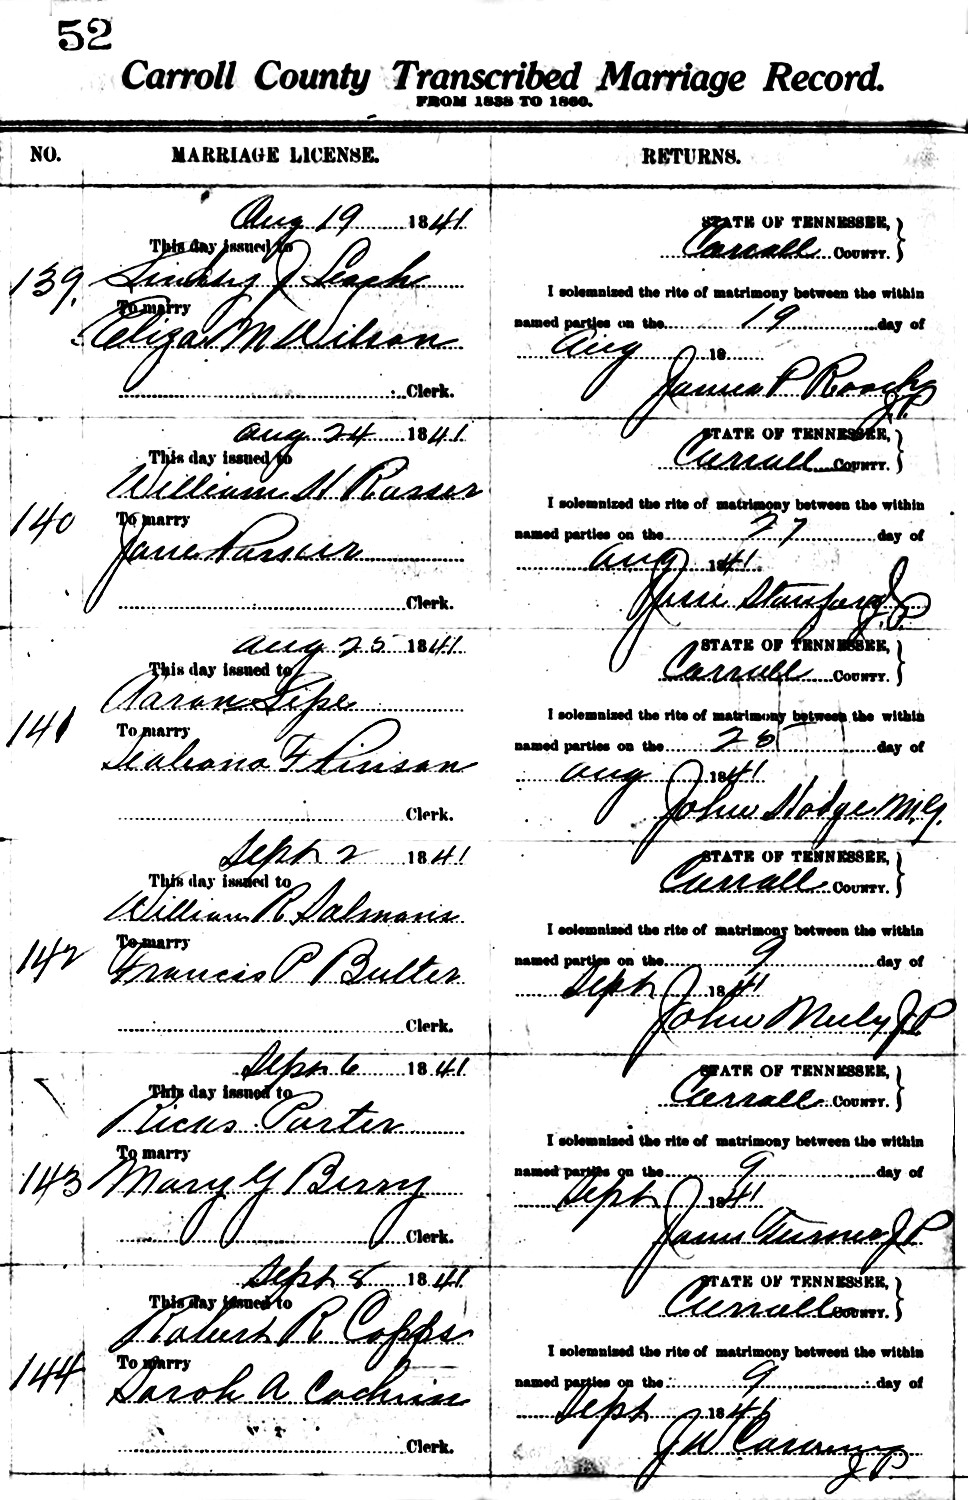 52
Carroll County Transcribed Marriage Record.
FROM 1838 TO 1860.
NO. MARRIAGE LICENSE. RETURNS.
Aug 19 1841
This day issued to
139. J Leach
To marry
Eliza M Wilson
Clerk.
STATE OF TENNESSEE,
Carroll COUNTY.
I solemnized the rite of matrimony between the within
named parties on the 19 day of
Aug 18
James P Roach
J.P.
Aug 24 1841
This day issued to
William H Rasser
140
To marry
Jane
Clerk.
STATE OF TENNESSEE,
Carroll COUNTY.
I solemnized the rite of matrimony between the within
named parties on the 27 day of
Aug 1841.
J.P.
Aug 25 1841
This day issued to
Aaron Sipe
141
To marry
F Pinson
Clerk.
STATE OF TENNESSEE,
Carroll COUNTY.
I solemnized the rite of matrimony between the within
named parties on the day of
Aug 1841
John Hodge M.G.
Sept 2 1841
This day issued to
William R Salmons
142
To marry
Francis P Butler
Clerk.
STATE OF TENNESSEE,
Carroll COUNTY.
I solemnized the rite of matrimony between the within
named parties on the 9 day of
Sept 1841
John J.P
Sept 6 1841
This day issued to
Ricks Porter
To marry
143 Mary G Berry
Clerk.
STATE OF TENNESSEE,
Carroll COUNTY.
I solemnized the rite of matrimony between the within
named parties on the 9 day of
Sept 1841
Turner J P
Sept 8 1841
This day issued to
Robert R Copps
144 To marry
Sarah A Cochrin
Clerk.
STATE OF TENNESSEE,
Carroll COUNTY.
I solemnized the rite of matrimony between the within
named parties on the 9 day of
Sept 1841
J W
J P.